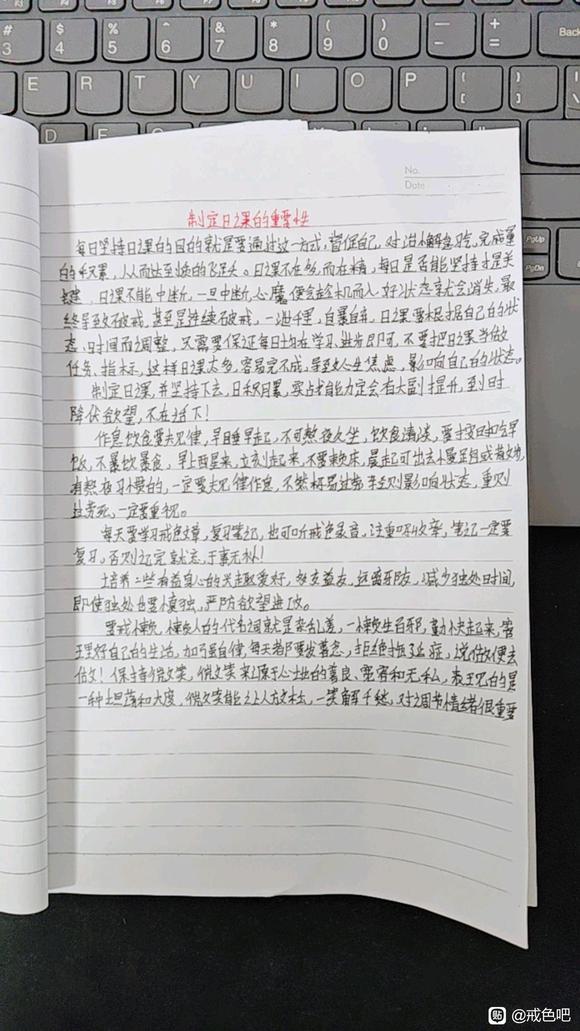 #
3
$
4
%
5
^
6
&
7
*
8
(
9
)
0
—
-
+
=
Back
E R T Y U I O P
{
[
}
]
D
PgUp
PgDn
No.
Date
制定日课的重要性
每日坚持日课的目的就是要通过这一方式,督促自己,对治懈怠习气,完成量
的积累,从而达至质的飞跃。日课不在多,而在精,每日是否能坚持才是关
键,日课不能中断,一旦中断,心魔便会趁机而入,好状态就会消失,最
终导致破戒,甚至是连续破戒,一泄千里,自暴自弃,日课要根据自己的状
态、时间而调整,只需要保证每日均在学习、进步即可,不要把日课当做
任务、指标,这样日课太多,容易完不成,导致人生焦虑,影响自己的状态。
制定日课,并坚持下去,日积月累,实战能力定会有大副提升,到时
降伏欲望,不在话下!
作息饮食要规律,早睡早起,不可熬夜久坐,饮食清淡,要按时吃早
饭,不暴饮暴食,早上醒来,立刻起来,不要赖床,晨起可出去慢走或
有熬夜习惯的,一定要规律作息,不然轻则影响状态,重则
一定要重视。
每天要学习戒色文章,复习笔记,也可听戒色录音,注重吸收率,笔记一定要
复习,否则记完就忘,于事无补!
培养一些有益身心的兴趣爱好,多交益友,远离邪友,减少独处时间,
即使独处也要慎独,严防欲望进攻。
要戒懒,懒人的代名词就是杂乱差,一懒生百邪,勤快起来,管
理好自己的生活,加强自律,每天都要发善念,拒绝拖延症,说做便去
做!保持着微笑,微笑来源于心地的善良、宽容和无私,表现的是
一种坦荡和大度,微笑能让人放松,一笑解千愁,对调节情绪很重要
贴 @戒色吧